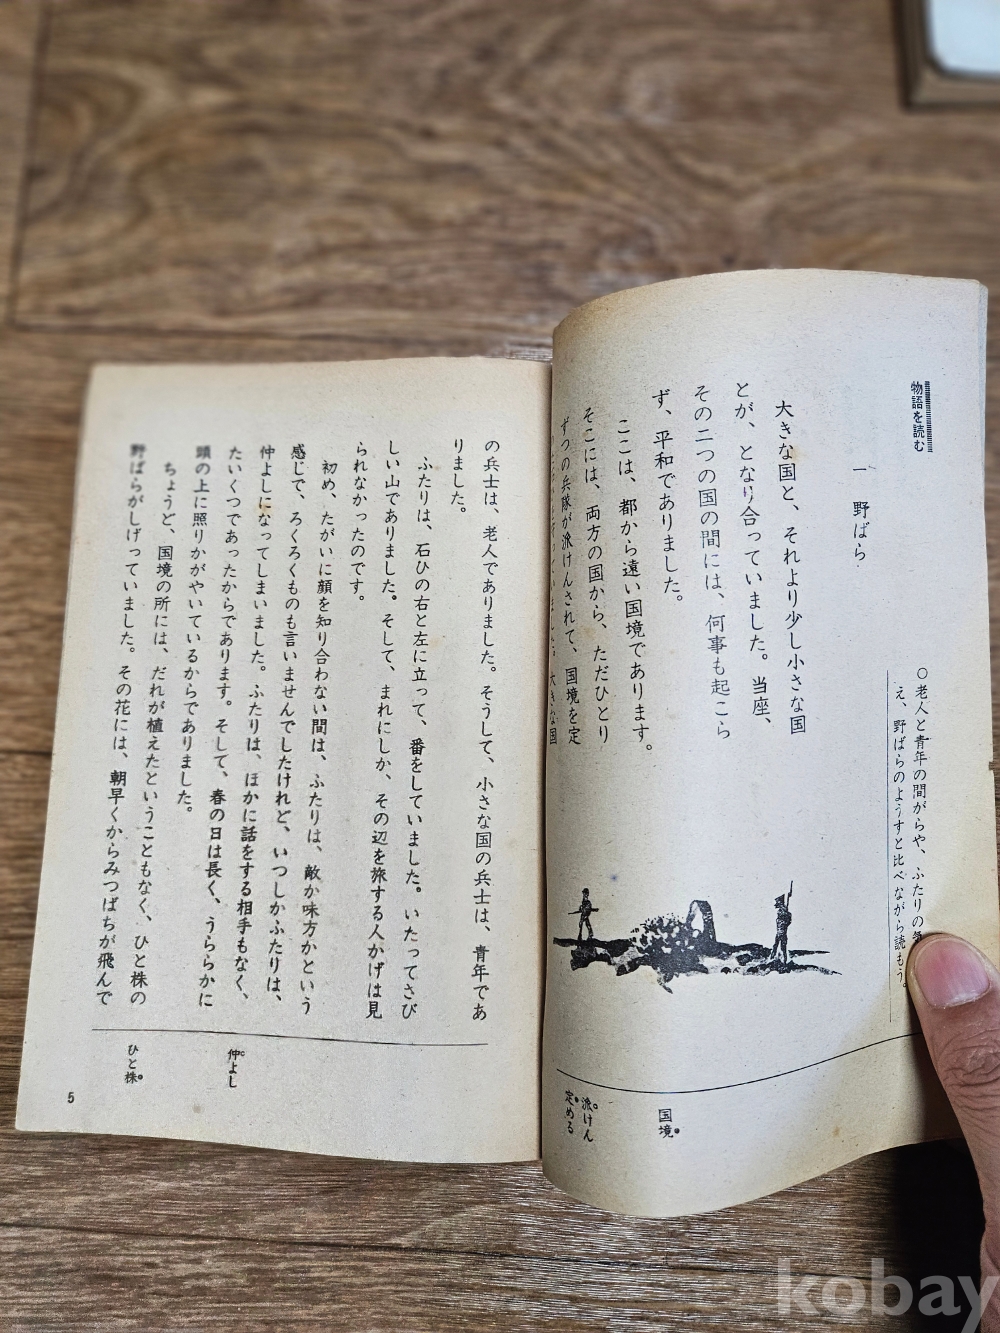 物語を読む
一 野ばら
○老人と青年の間がらや、ふたりの
え、野ばらのようすと比べながら読もう。
大きな国と、それより少し小さな国
とが、となり合っていました。当座、
その二つの国の間には、何事も起こら
ず、平和でありました。
ここは、都から遠い国境であります。
そこには、両方の国から、ただひとり
ずつの兵隊が派けんされて、国境を定
大きな国
国境
派けん
定める
の兵士は、老人でありました。そうして、小さな国の兵士は、青年であ
りました。
ふたりは、石ひの右と左に立って、番をしていました。いたってさび
しい山でありました。そして、まれにしか、その辺を旅する人かげは見
られなかったのです。
初め、たがいに顔を知り合わない間は、ふたりは、敵か味方かという
感じで、ろくろくものも言いませんでしたけれど、いつしかふたりは、
仲よしになってしまいました。ふたりは、ほかに話をする相手もなく、
たいくつであったからであります。そして、春の日は長く、うららかに
頭の上に照りかがやいているからでありました。
ちょうど、国境の所には、だれが植えたということもなく、ひと株の
野ばらがしげっていました。その花には、朝早くからみつばちが飛んで
仲よし
ひと株
5
kobay